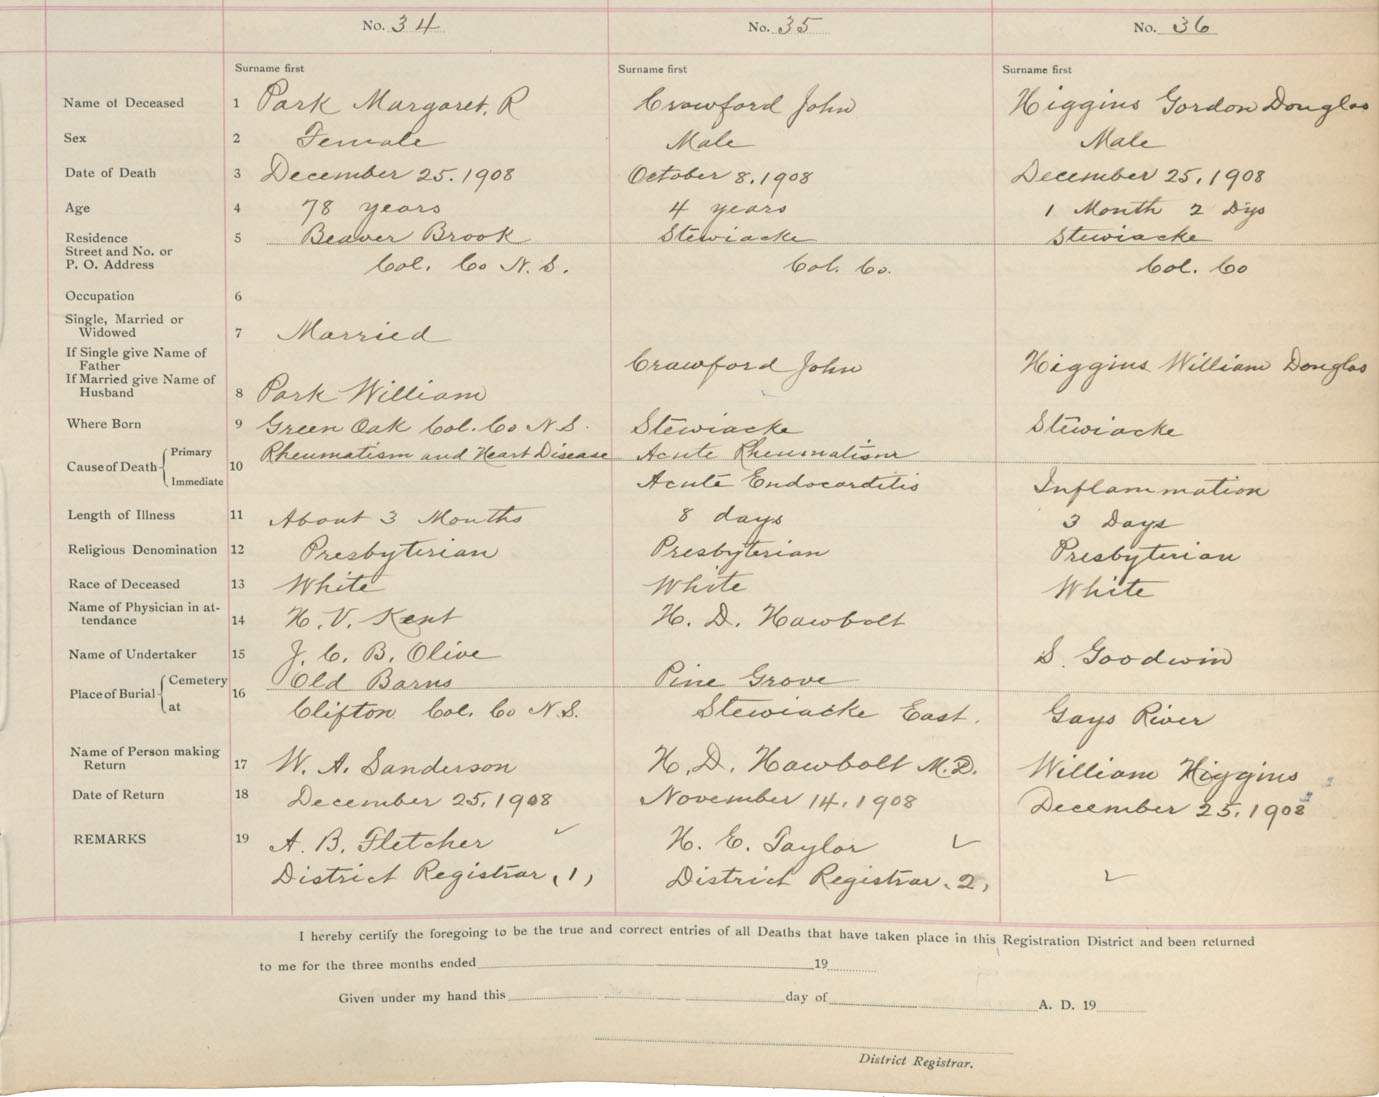 No. 34 No. 35 No. 36
Surname first Surname first Surname first
Name of Deceased 1 Park Margaret, R Crawford John Higgins Gordon Douglas
Sex 2 Female Male Male
Date of Death 3 December 25. 1908 October 8, 1908 December 25, 1908
Age 4 78 years 4 years 1 Month 2 Dys
Residence 5 Beaver Brook Stewiacke Stewiacke
Street and No. or
P. O. Address Col. Co N. S. Col. Co. Col. Co
Occupation 6
Single, Married or
Widowed 7 Married
If Single give Name of
Father Crawford John Higgins William Douglas
If Married give Name of
Husband 8 Park William
Where Born 9 Green Oak Col. Co N S. Stewiacke Stewiacke
Cause of Death Primary 10 Rheumatism and Heart Disease Acute Rheumatism
Immediate Acute Endocarditis Inflammation
Length of Illness 11 About 3 Months 8 days 3 Days
Religious Denomination 12 Presbyterian Presbyterian Presbyterian
Race of Deceased 13 White White White
Name of Physician in at-
tendance 14 H. V. Kent H. D. Hawbolt
Name of Undertaker 15 J. C. B. Olive S. Goodwin
Place of Burial Cemetery 16 Old Barns Pine Grove
at Clifton Col. Co N S. Stewiacke East. Gays River
Name of Person making
Return 17 W. A. Sanderson H. D. Hawbolt M.D. William Higgins
Date of Return 18 December 25, 1908 November 14, 1908 December 25, 1908
REMARKS 19 A. B. Fletcher ✓ H. E. Taylor ✓
District Registrar (1) District Registrar (2) ✓
I hereby certify the foregoing to be the true and correct entries of all Deaths that have taken place in this Registration District and been returned
to me for the three months ended 19
Given under my hand this day of A. D. 19
District Registrar.